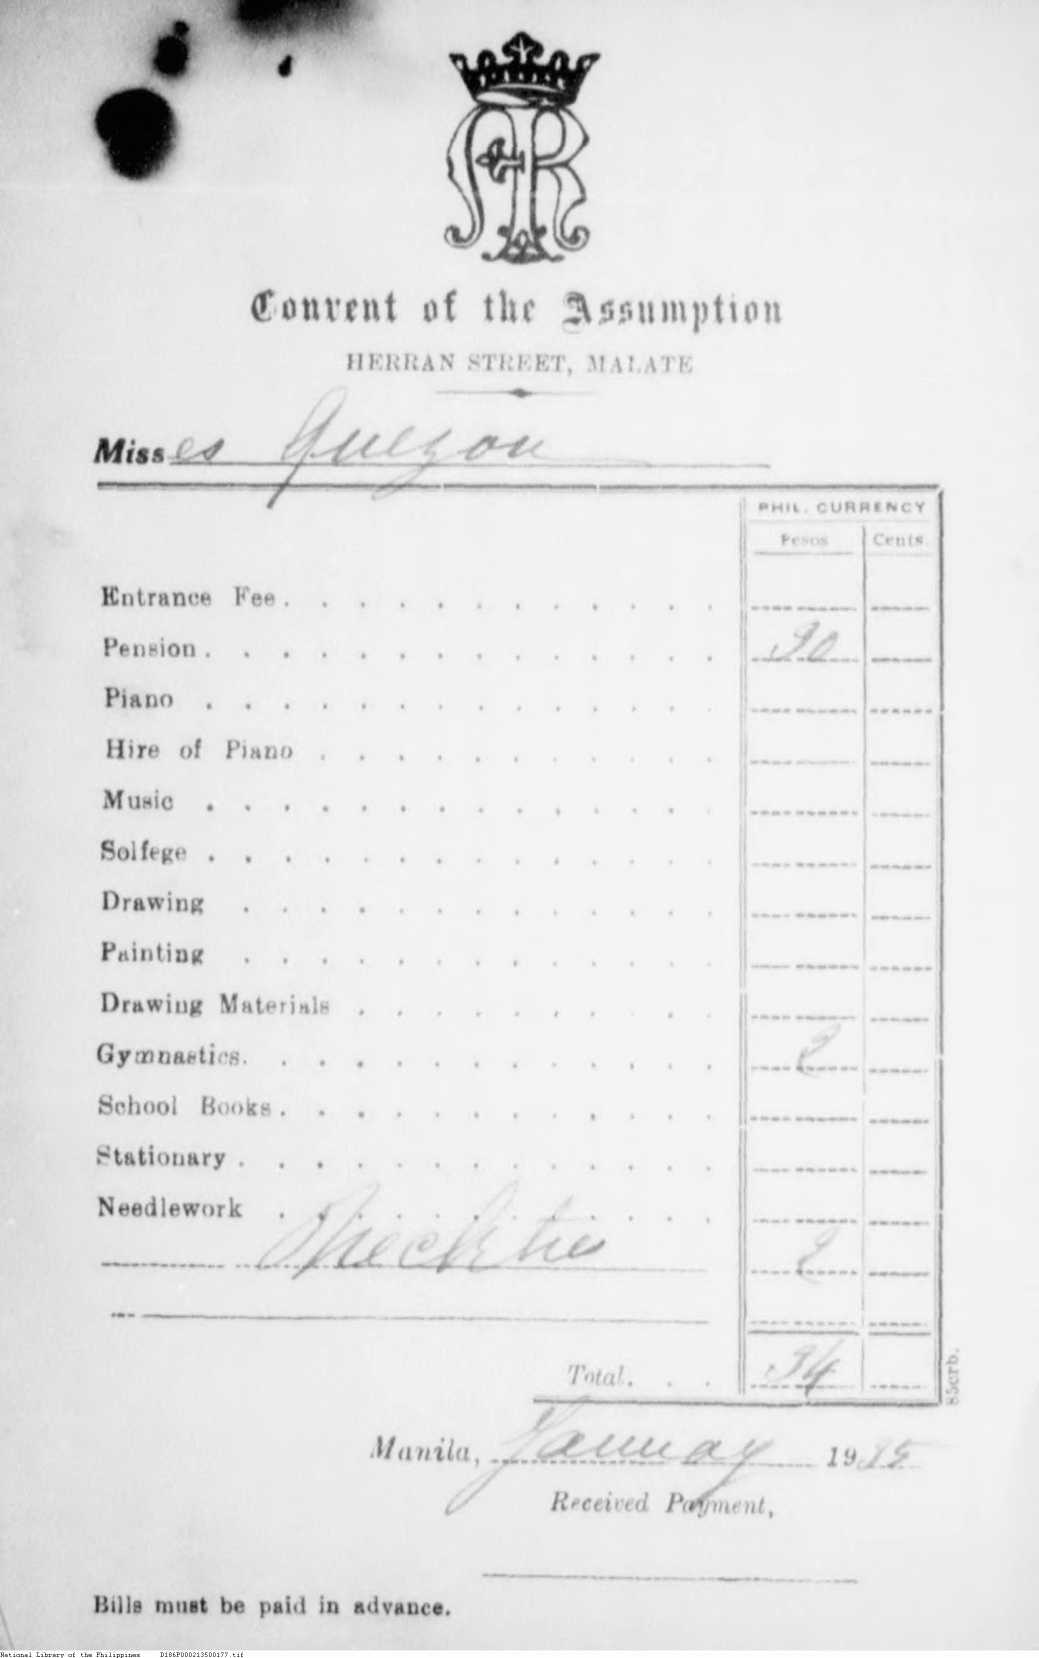 AR
Convent of the Assumption
HERRAN STREET, MALATE
Misses Quezon
PHIL. CURRENCY
Pesos Cents.
Entrance Fee. . . . . . . . . . . .
Pension . . . . . . . . . . . . . . 30
Piano . . . . . . . . . . . . . .
Hire of Piano . . . . . . . . . . .
Music . . . . . . . . . . . . . .
Solfege . . . . . . . . . . . . . .
Drawing . . . . . . . . . . . . .
Painting . . . . . . . . . . . . .
Drawing Materials . . . . . . . . . .
Gymnastics. . . . . . . . . . . . . 2
School Books . . . . . . . . . . . .
Stationary . . . . . . . . . . . . .
Needlework . . . . . . . . . . . .
Neckties 2
Total. . . 34
85crb.
Manila, January 1935
Received Payment,
Bills must be paid in advance.
National Library of the Philippines D186P000213500177.tif